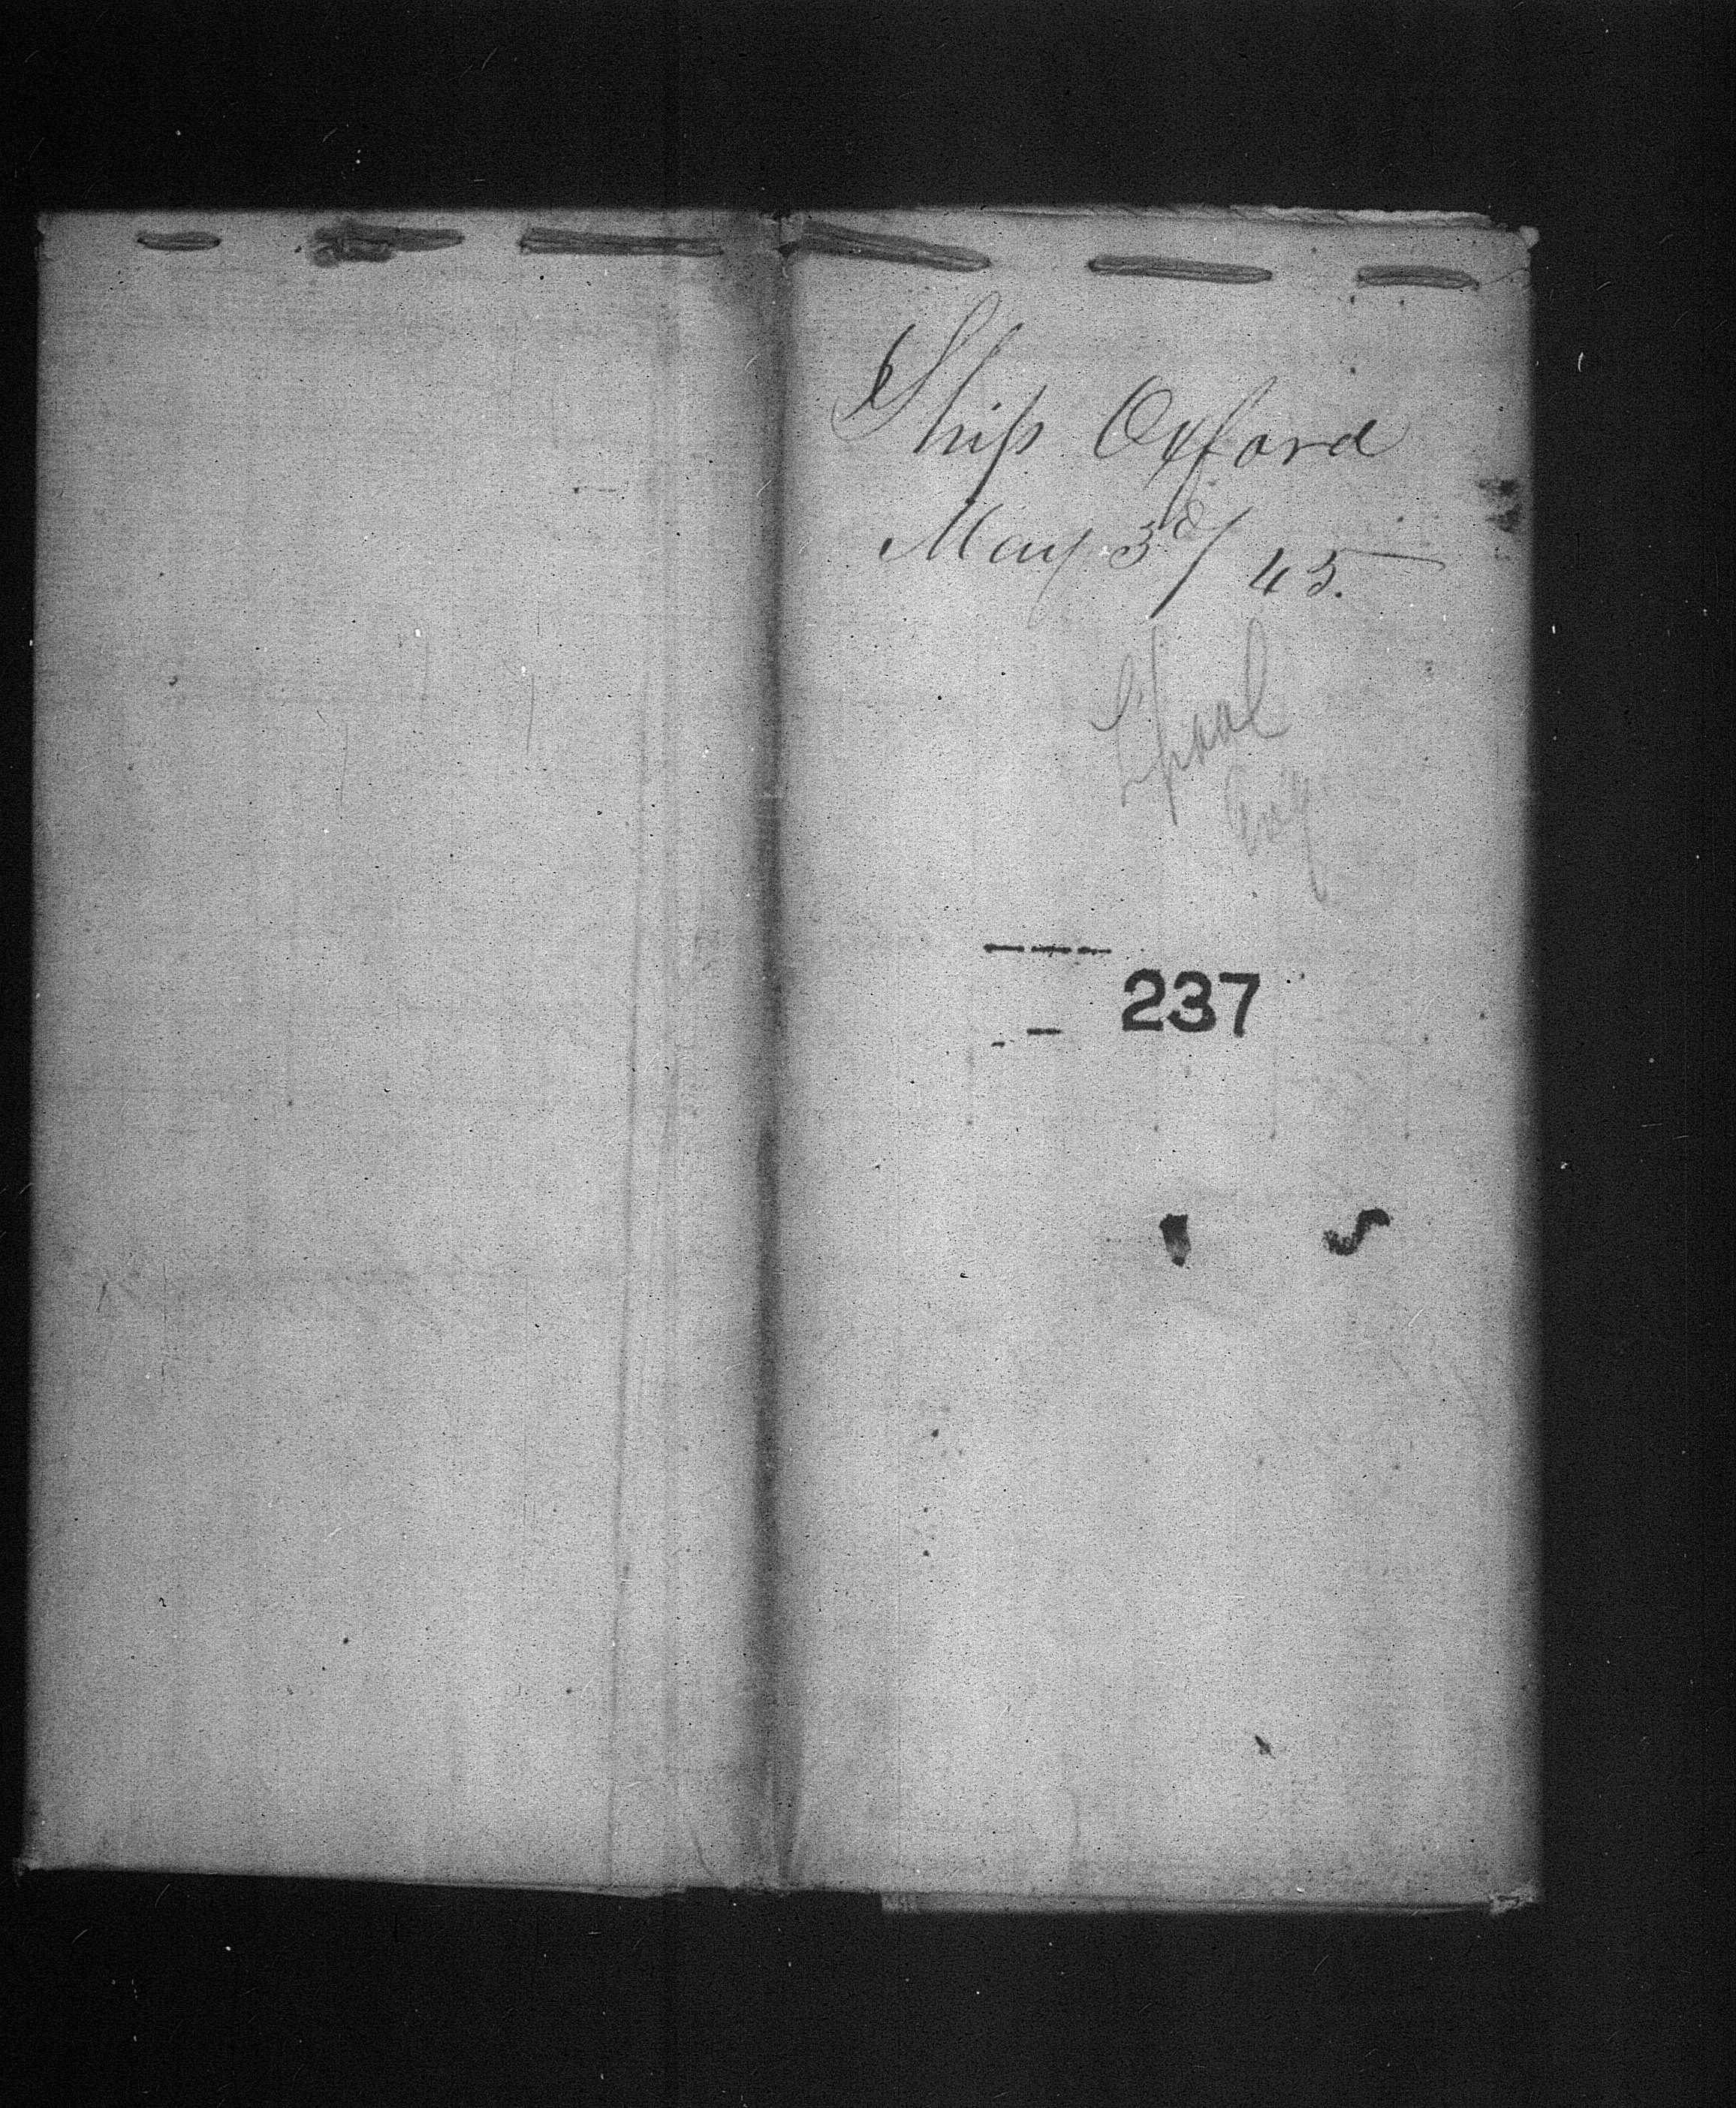 Ship Oxford
May 3d/45.
L'pool
237